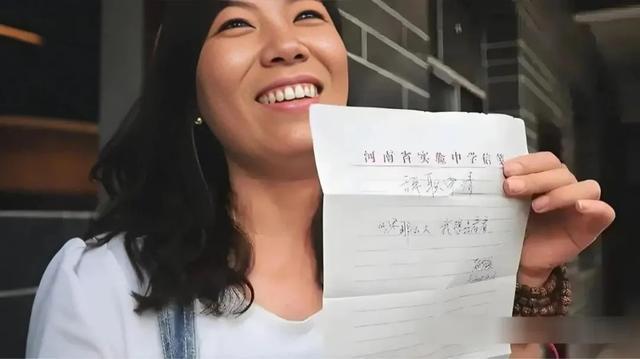 河南省实验中学信笺
辞职申请
世界那么大 我想去看看